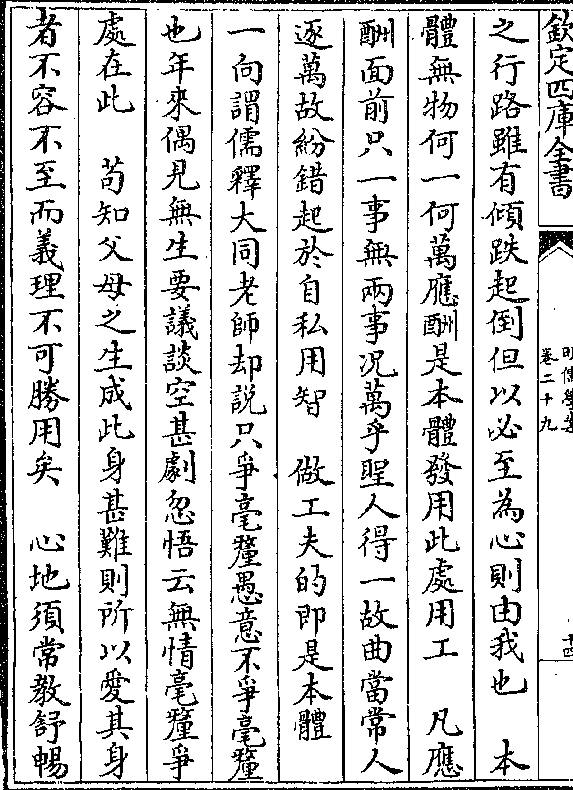 欽定四庫全書
明儒學案
卷二十九
十四
之行路雖有傾跌起倒但以必至為心則由我也　本
體無物何一何萬應酬是本體發用此處用工　凡應
酬面前只一事無兩事况萬乎聖人得一故曲當常人
逐萬故紛錯起於自私用智　做工夫的即是本體
一向謂儒釋大同老師却説只爭毫釐愚意不爭毫釐
也年來偶見無生要議談空甚劇忽悟云無情毫釐爭
處在此　苟知父母之生成此身甚難則所以愛其身
者不容不至而義理不可勝用矣　心地須常敎舒暢